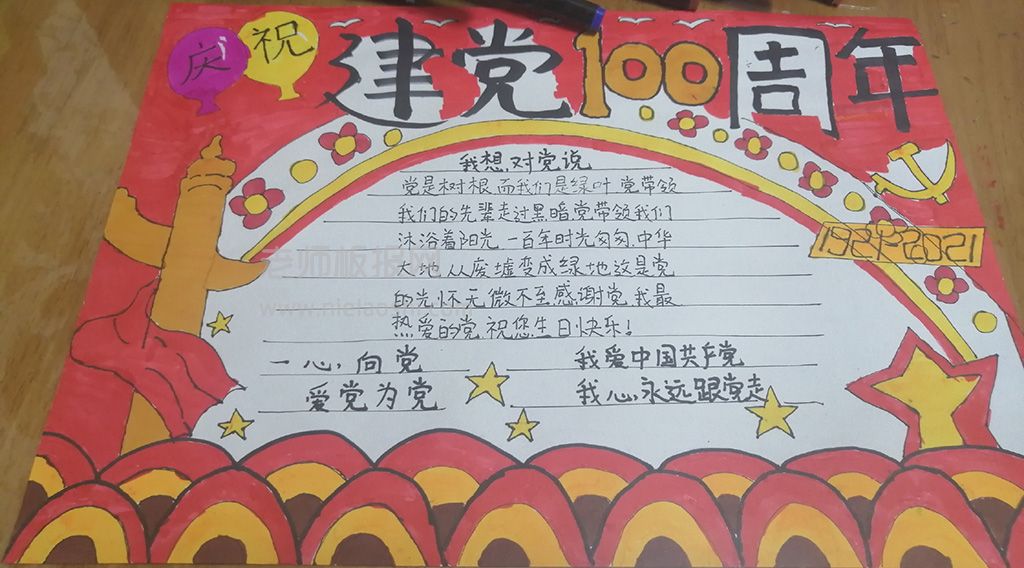 庆祝
建党100周年
1921-2021
我想对党说
党是树根而我们是绿叶 党带领
我们的先辈走过黑暗党带领我们
沐浴着阳光 一百年时光匆匆,中华
大地从废墟变成绿地这是党
的光怀无微不至感谢党 我最
热爱的党 祝您生日快乐!
一心,向党
我爱中国共产党
爱党为党
我心永远跟党走
老师板报网